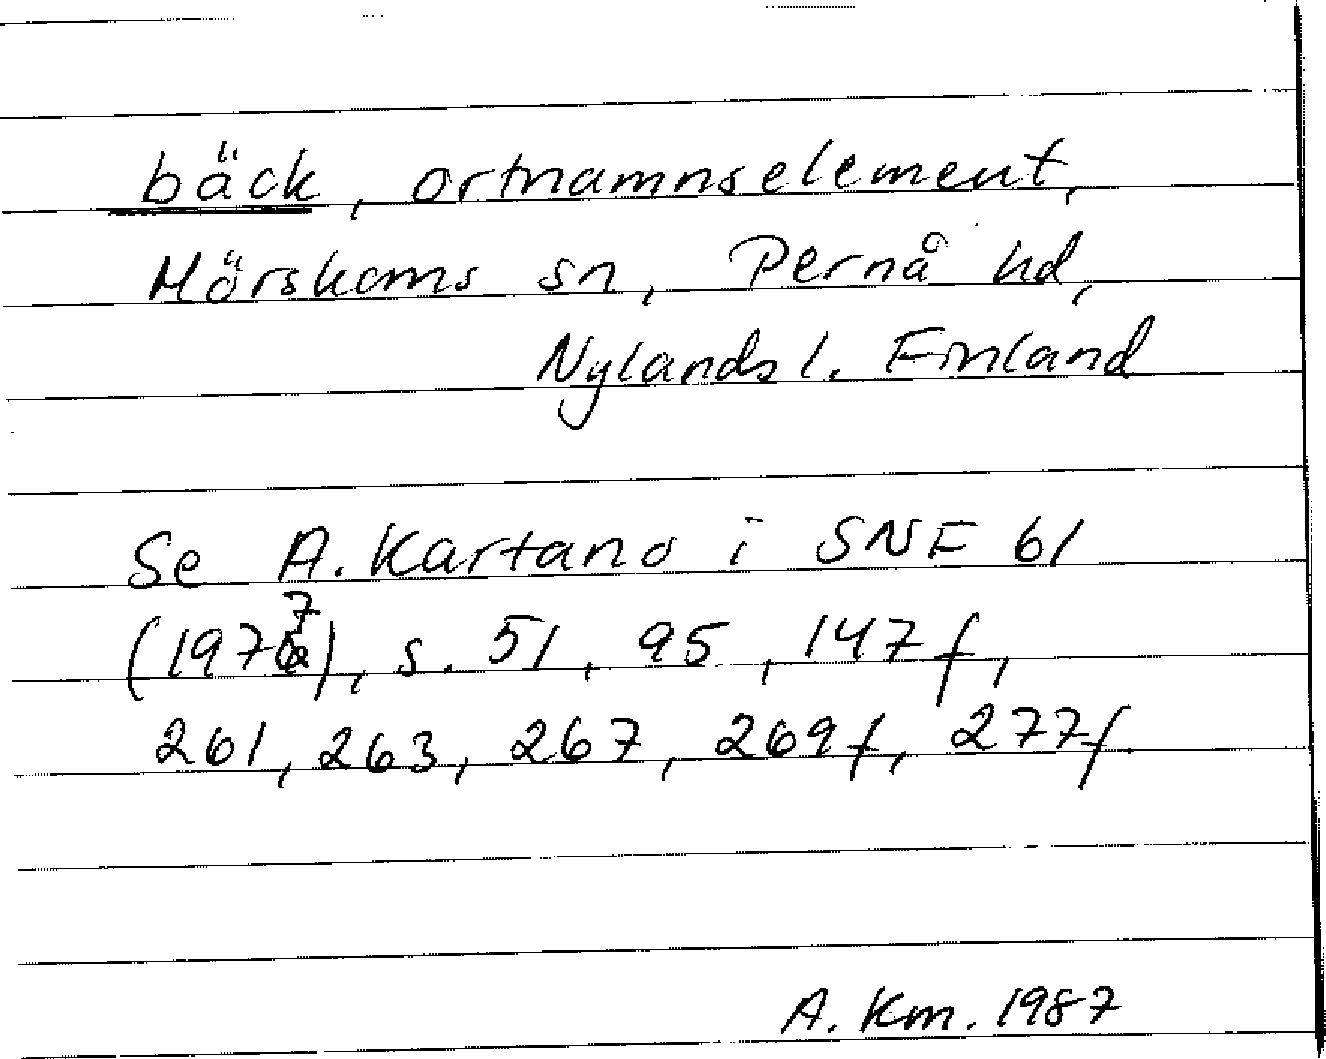 bäck, ortnamnselement,
Mörskoms sn, Pernå hd,
Nylands l. Finland
Se A. Kartano i SNF 61
(1977), s. 51, 95, 147 f,
261, 263, 267, 269 f, 277 f.
A. Km. 1987